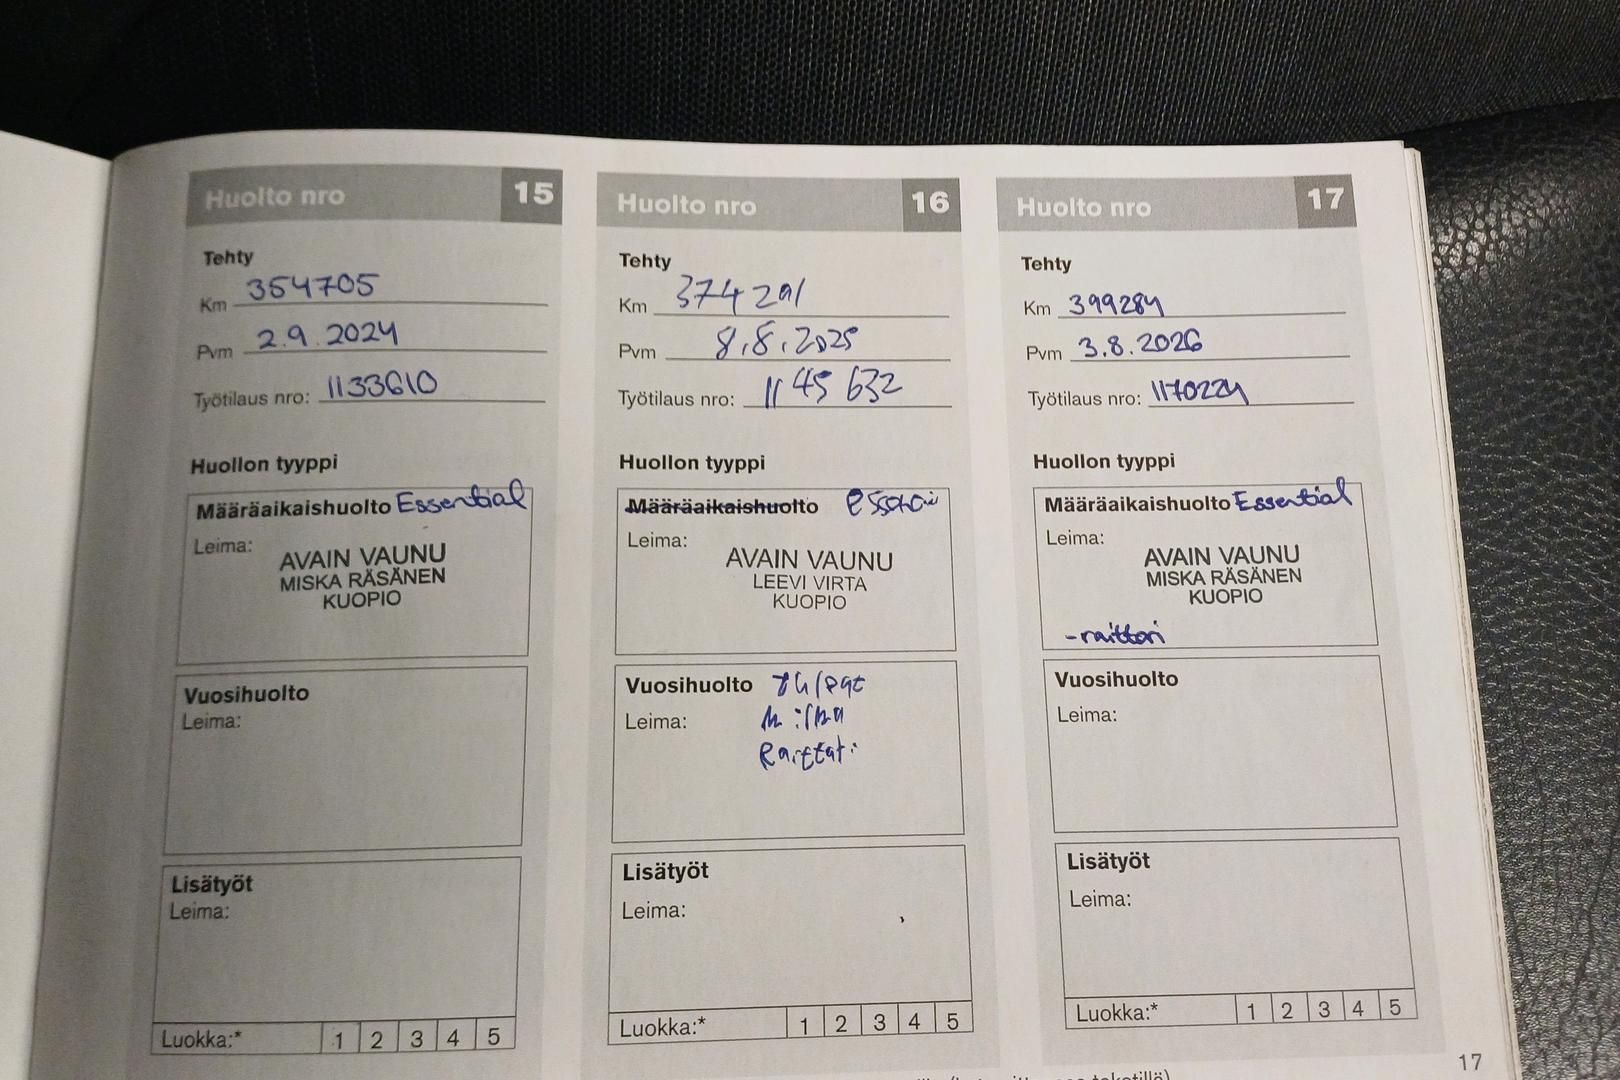 Huolto nro 15
Tehty
Km 354705
Pvm 2.9.2024
Työtilaus nro: 1133610
Huollon tyyppi
Määräaikaishuolto Essential
Leima:
AVAIN VAUNU
MISKA RÄSÄNEN
KUOPIO
Vuosihuolto
Leima:
Lisätyöt
Leima:
Luokka:* 1 2 3 4 5
Huolto nro 16
Tehty
Km 374291
Pvm 8.8.2025
Työtilaus nro: 1145632
Huollon tyyppi
Määräaikaishuolto
Leima:
AVAIN VAUNU
LEEVI VIRTA
KUOPIO
Vuosihuolto
Leima:
Lisätyöt
Leima:
Luokka:* 1 2 3 4 5
Huolto nro 17
Tehty
Km 399284
Pvm 3.8.2026
Työtilaus nro: 1170224
Huollon tyyppi
Määräaikaishuolto Essential
Leima:
AVAIN VAUNU
MISKA RÄSÄNEN
KUOPIO
Vuosihuolto
Leima:
Lisätyöt
Leima:
Luokka:* 1 2 3 4 5
17